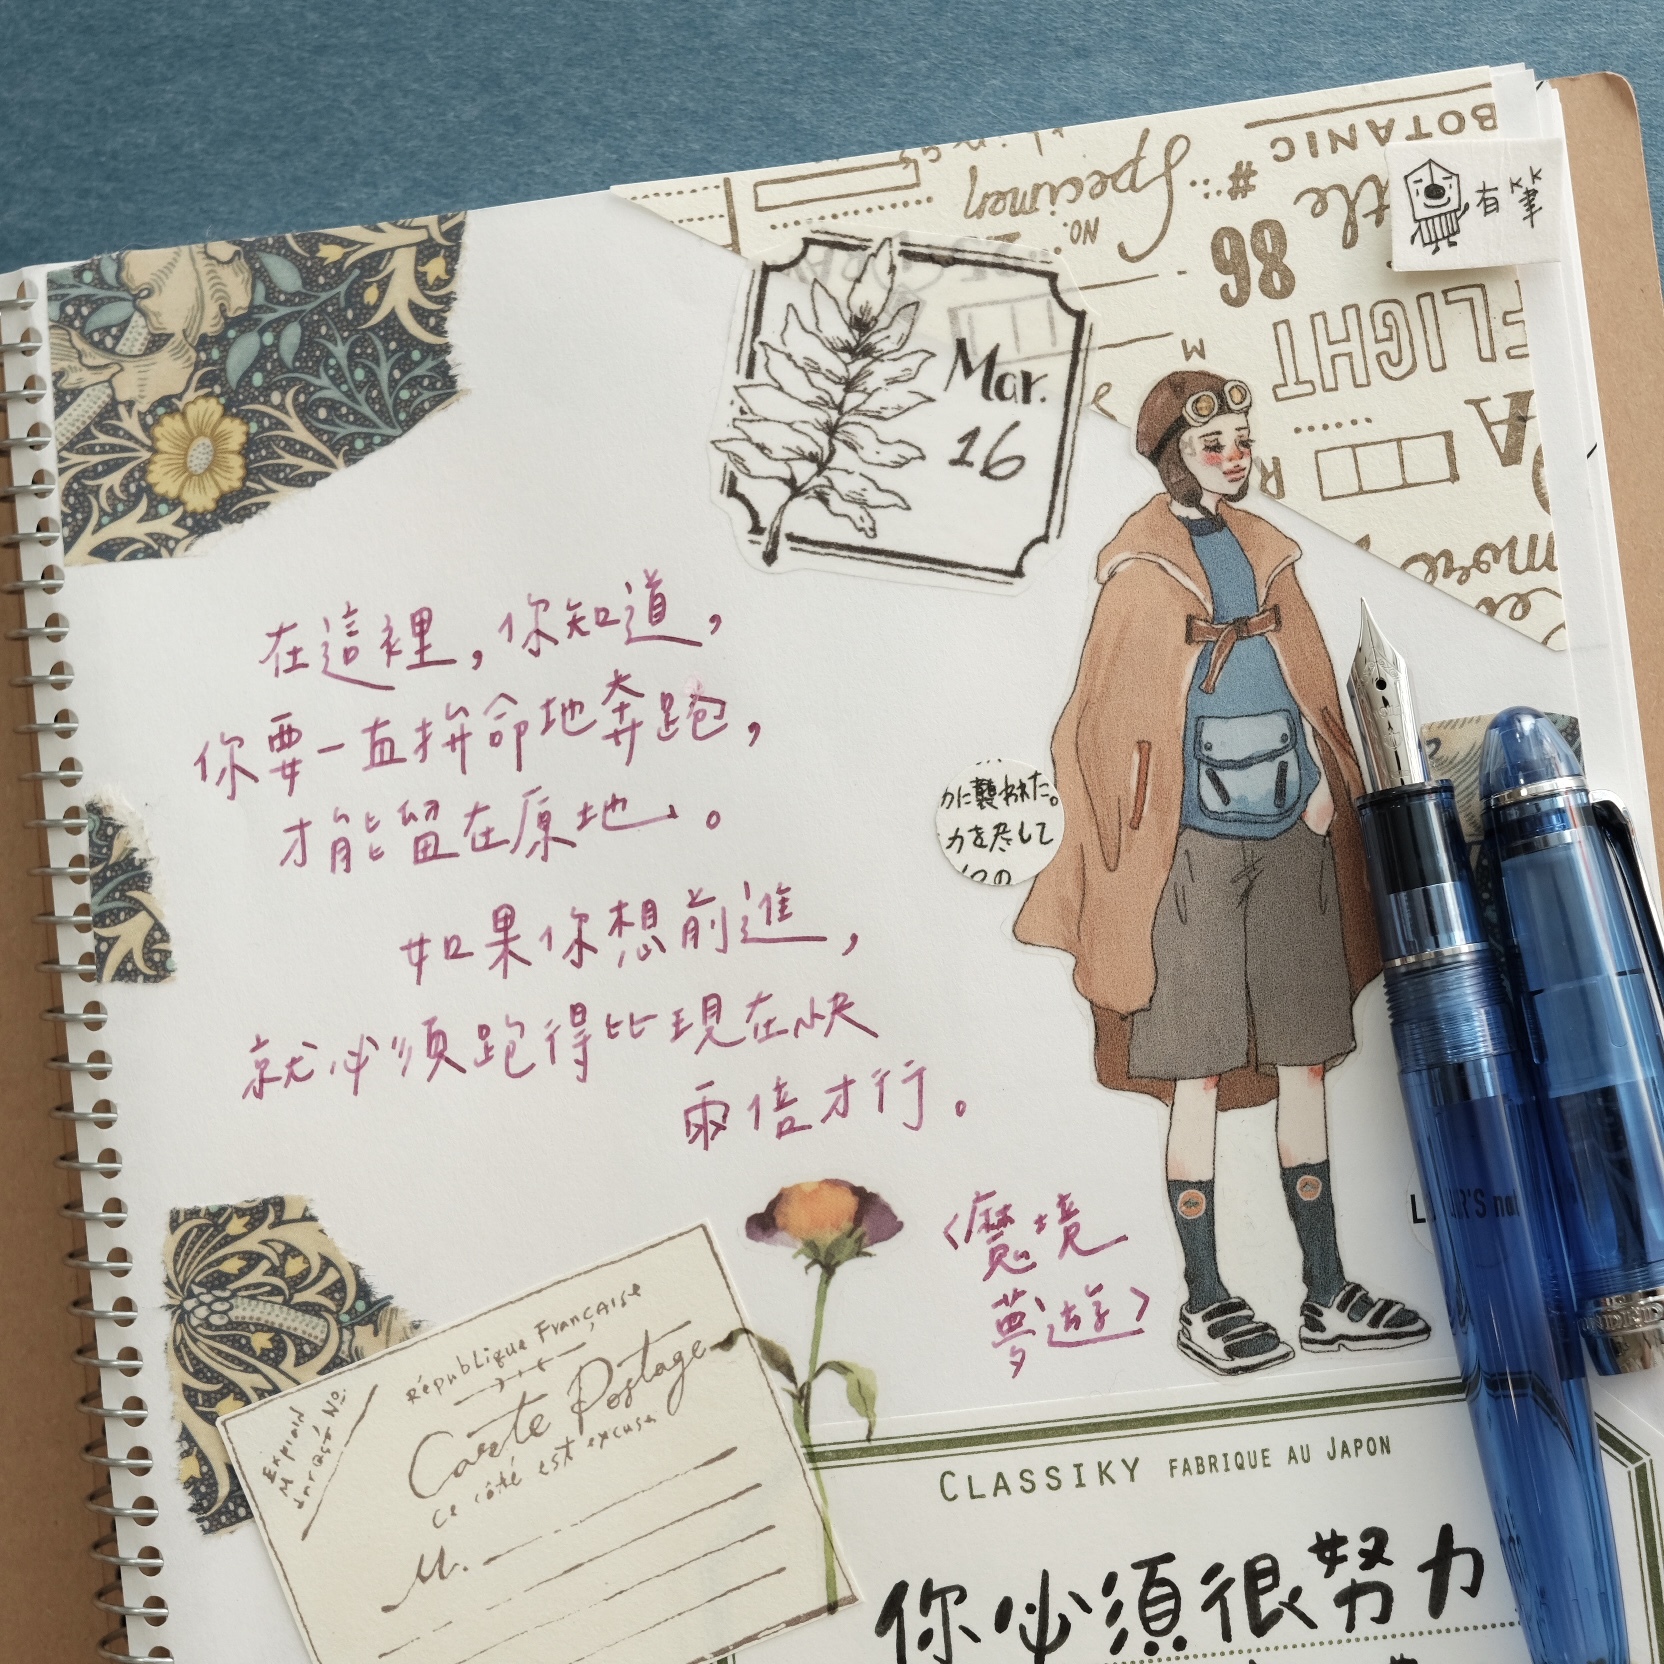 BOTANIC
Specimen
NO.
#
86
FLIGHT
M
R
有筆
Mar.
16
在這裡，你知道，
你要一直拚命地奔跑，
才能留在原地。
如果你想前進，
就必須跑得比現在快
兩倍才行。
〈魔境
夢遊〉
カに襲われた。
力を尽して
République Française
Carte Postage
Ce côté est
M.
CLASSIKY FABRIQUE AU JAPON
你必須很努力